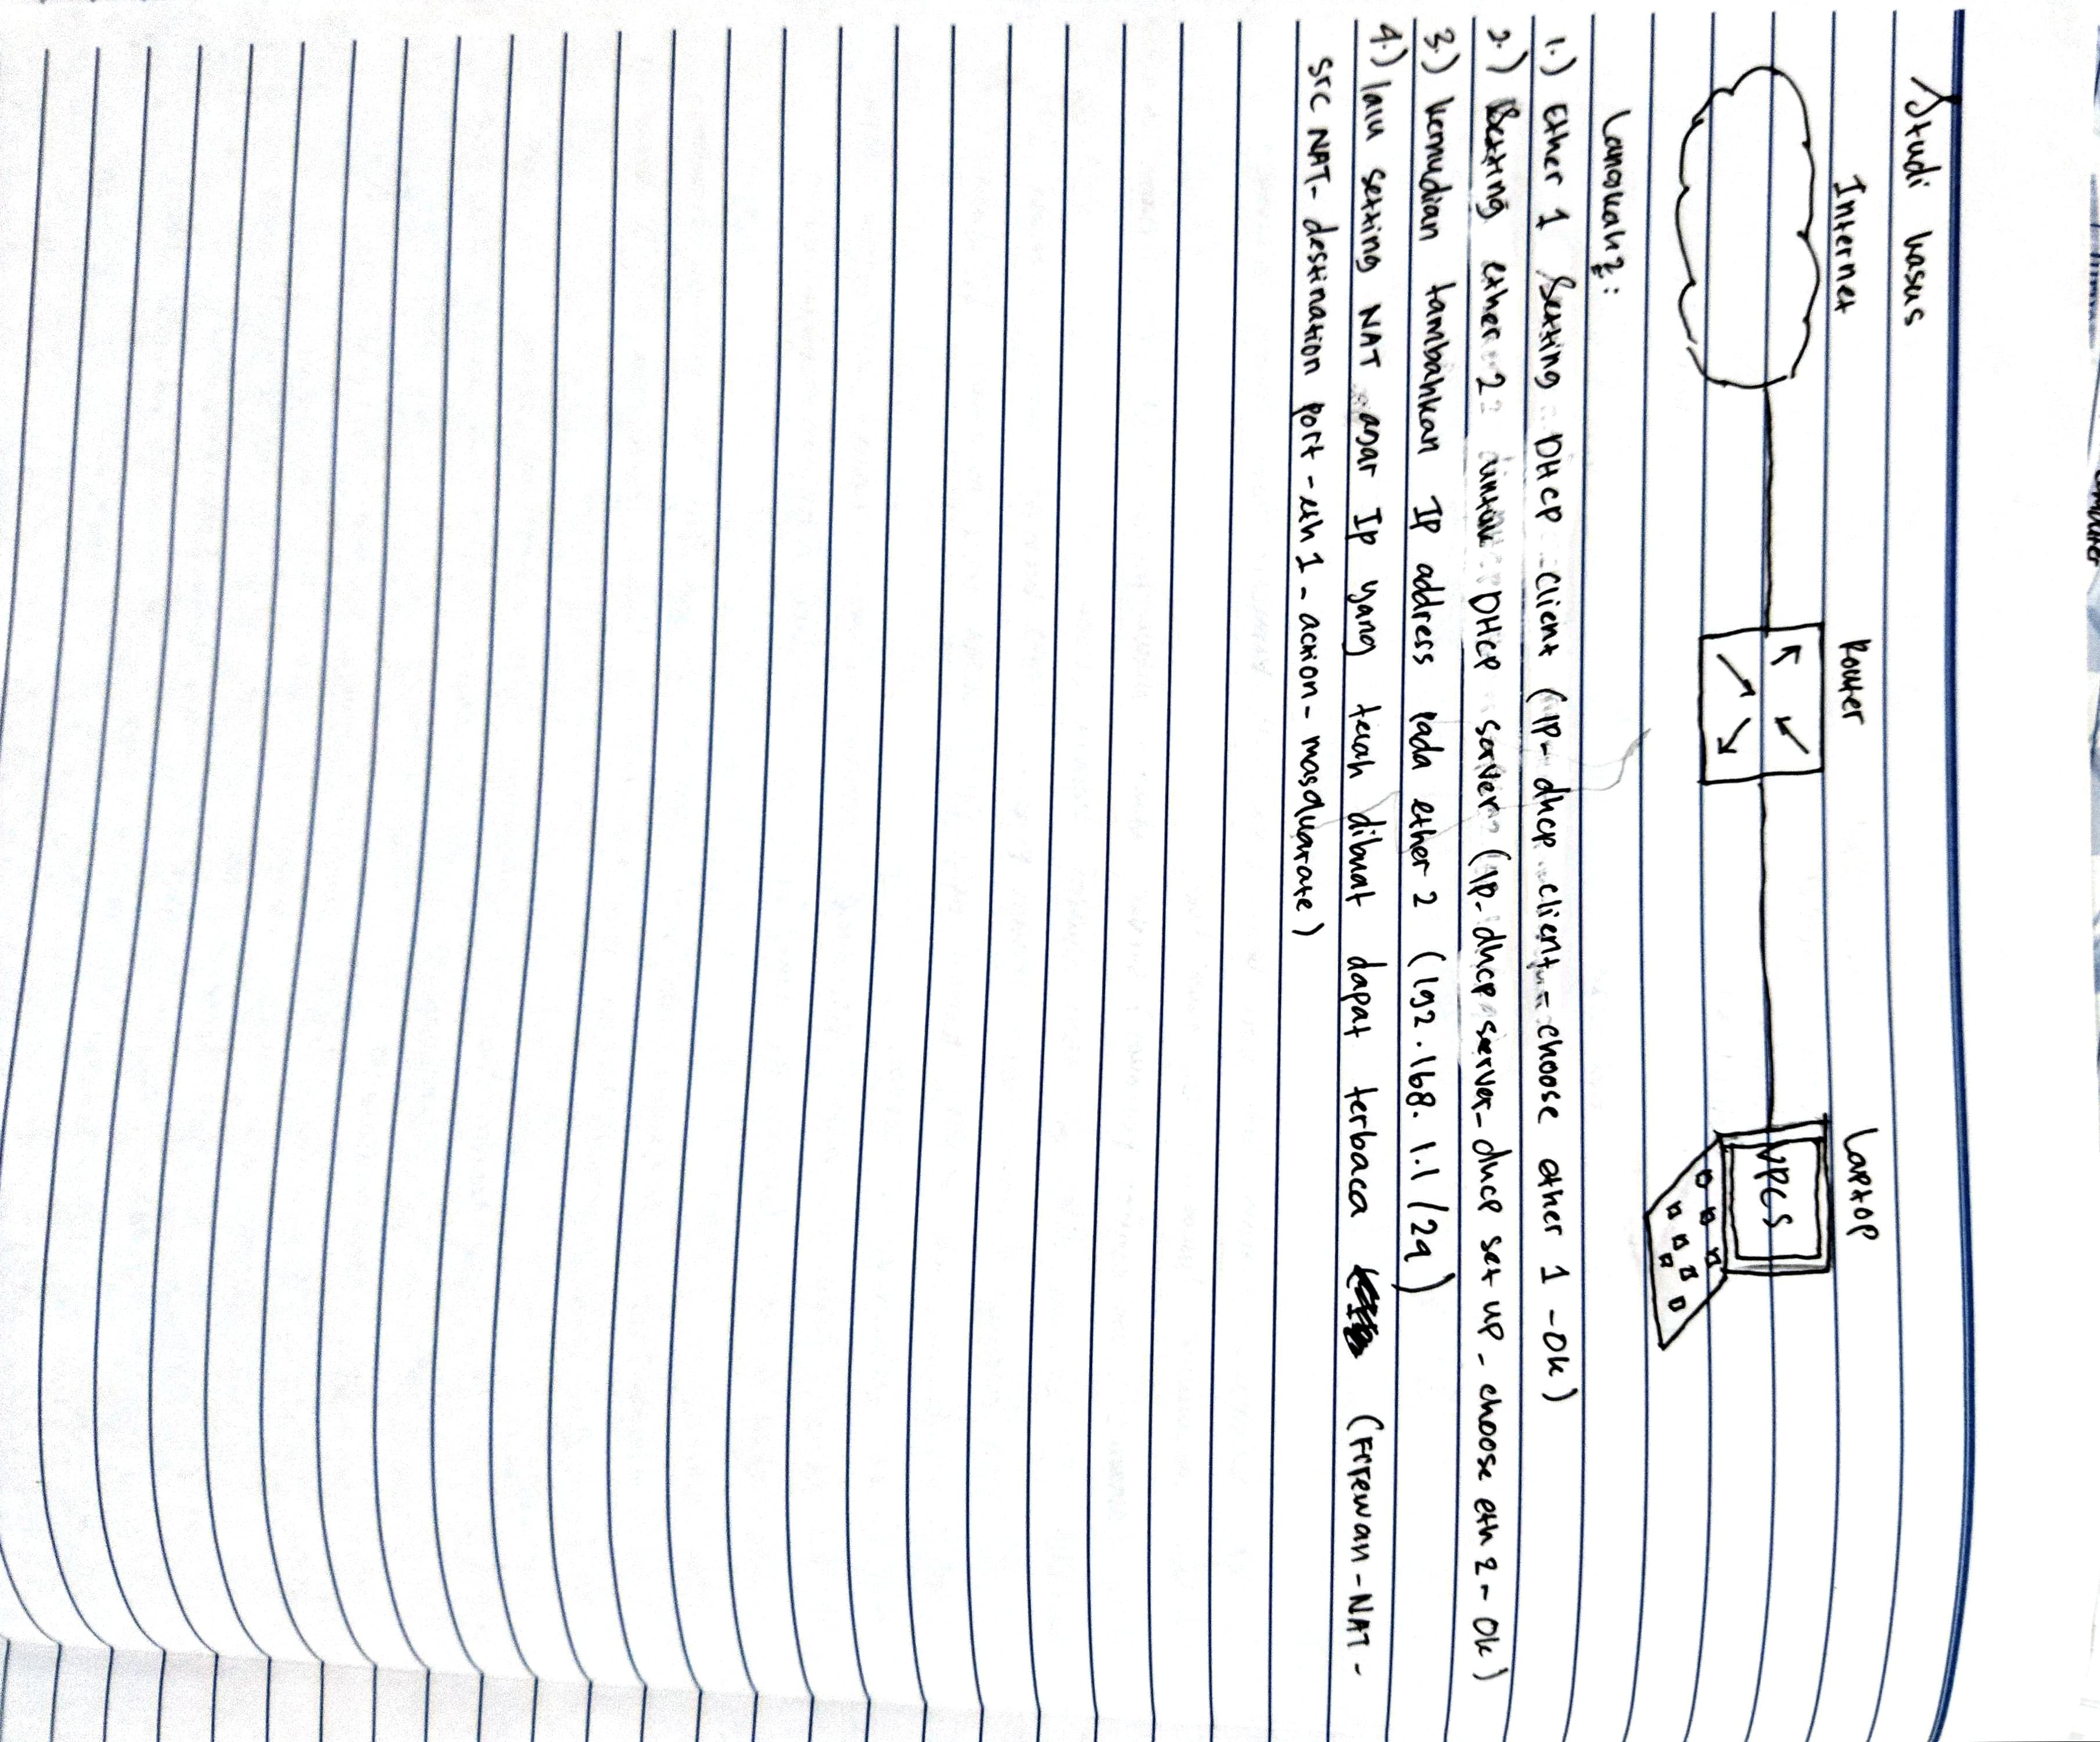 Studi kasus
Internet Router Laptop
VPCS
Langkah2:
1.) Ether 1 Setting DHCP Client (IP- dhcp client - choose ether 1 - Ok)
2.) Setting ether 2 untuk DHCP server (Ip- dhcp server- dhcp set up - choose eth 2 - Ok)
3.) kemudian tambahkan IP address pada ether 2 (192.168.1.1/24)
4.) lalu setting NAT agar Ip yang telah dibuat dapat terbaca (Firewall - NAT -
src NAT- destination port - eth 1 - action - masquarate)